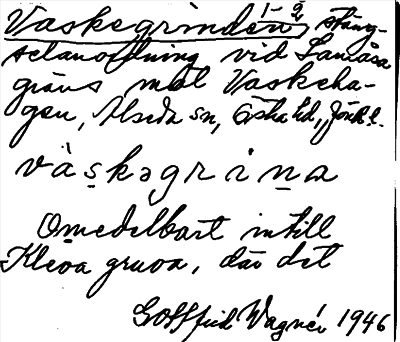 Vaskegrinden, 1-2 stäng-
selanordning vid Lamåsa
gräns mot Vaskeha-
gen, Alseda sn, Östra hd, Jönk. l.
våskəgrina
Omedelbart intill
Kleva gruva, där det
Gottfrid Wagnér 1946